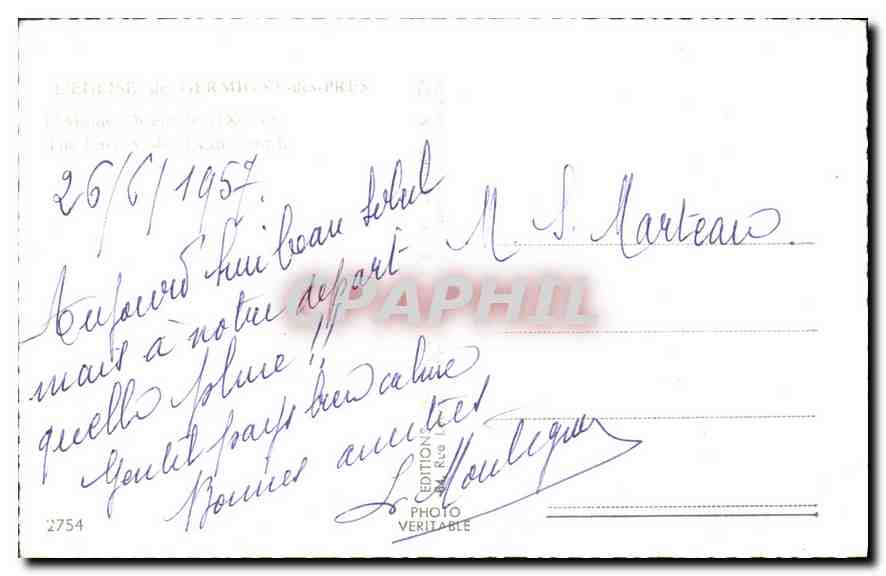 L'EGLISE de GERMIGNY-des-PRES
26/6/1957.
Aujourd'hui beau soleil
mais à notre départ
quelle pluie !!
Gentil pays bien calme
Bonnes amitiés
M. S. Marteau
CPAPHIL
EDITIONS
Rue
PHOTO
VERITABLE
2754